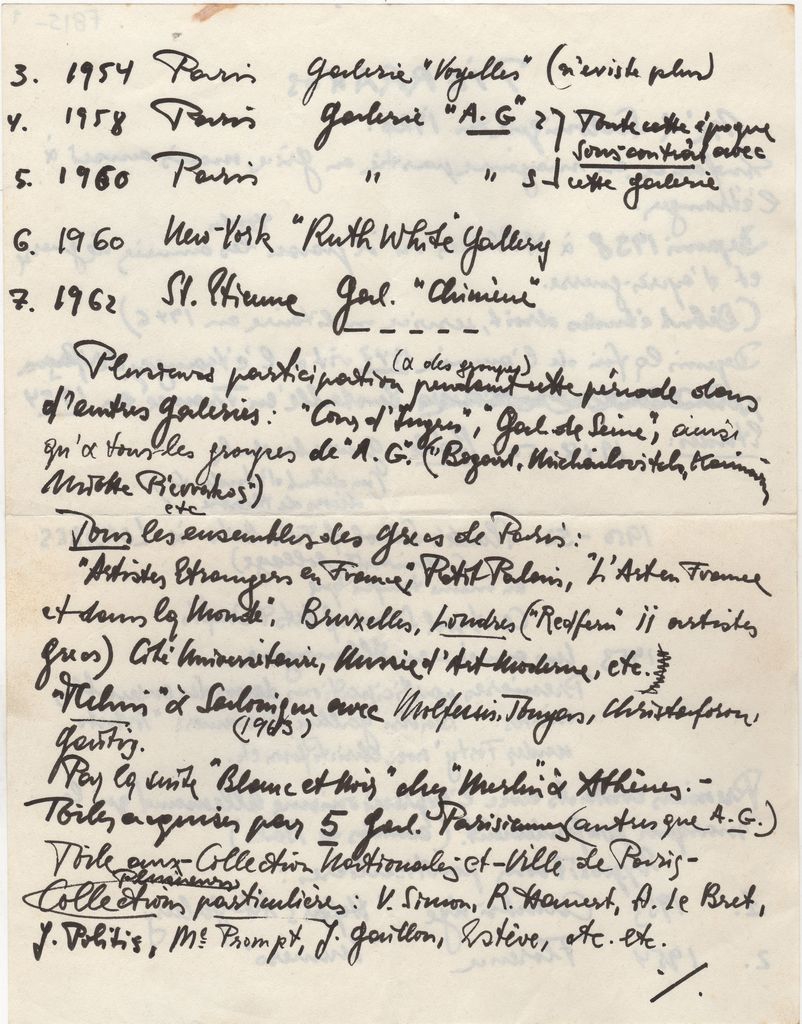 3. 1954 Paris Galerie "Voyelles" (n'existe plus)
4. 1958 Paris Galerie "A.G" Toute cette époque
sous contrat avec
5. 1960 Paris " " cette galerie
6. 1960 New-York "Ruth White" Gallery
7. 1962 St. Etienne Gal. "Chimène"
(à des groupes)
Plusieurs participation pendant cette période dans
d'autres Galeries: "Cour d'Ingres", "Gal. de Seine", ainsi
qu'à tous les groupes de "A.G." ("Bezard, Michaïlovitch,
Miotte Pierrakos")
etc
Tous les ensembles des Grecs de Paris:
"Artistes Etrangers en France", Petit Palais, "L'Art en France
et dans la Monde", Bruxelles, Londres ("Redfern" 11 artistes
grecs) Cité Universitaire, Musée d'Art Moderne, etc.
à Salonique avec Molfessis, Tougas, Christoforou,
(1963)
Gaïtis.
Par la suite "Blanc et Noir" chez "Merlin" à Athènes. -
Toiles acquises par 5 Gal. Parisiennes (autres que A.G.)
Toile aux - Collection Nationales - et - Ville de Paris -
plusieurs
Collections particulières: V. Simon, R. Hanert, A. le Bret,
J. Politis, Me Prompt, J. Gaillon, Estève, etc. etc.
./.